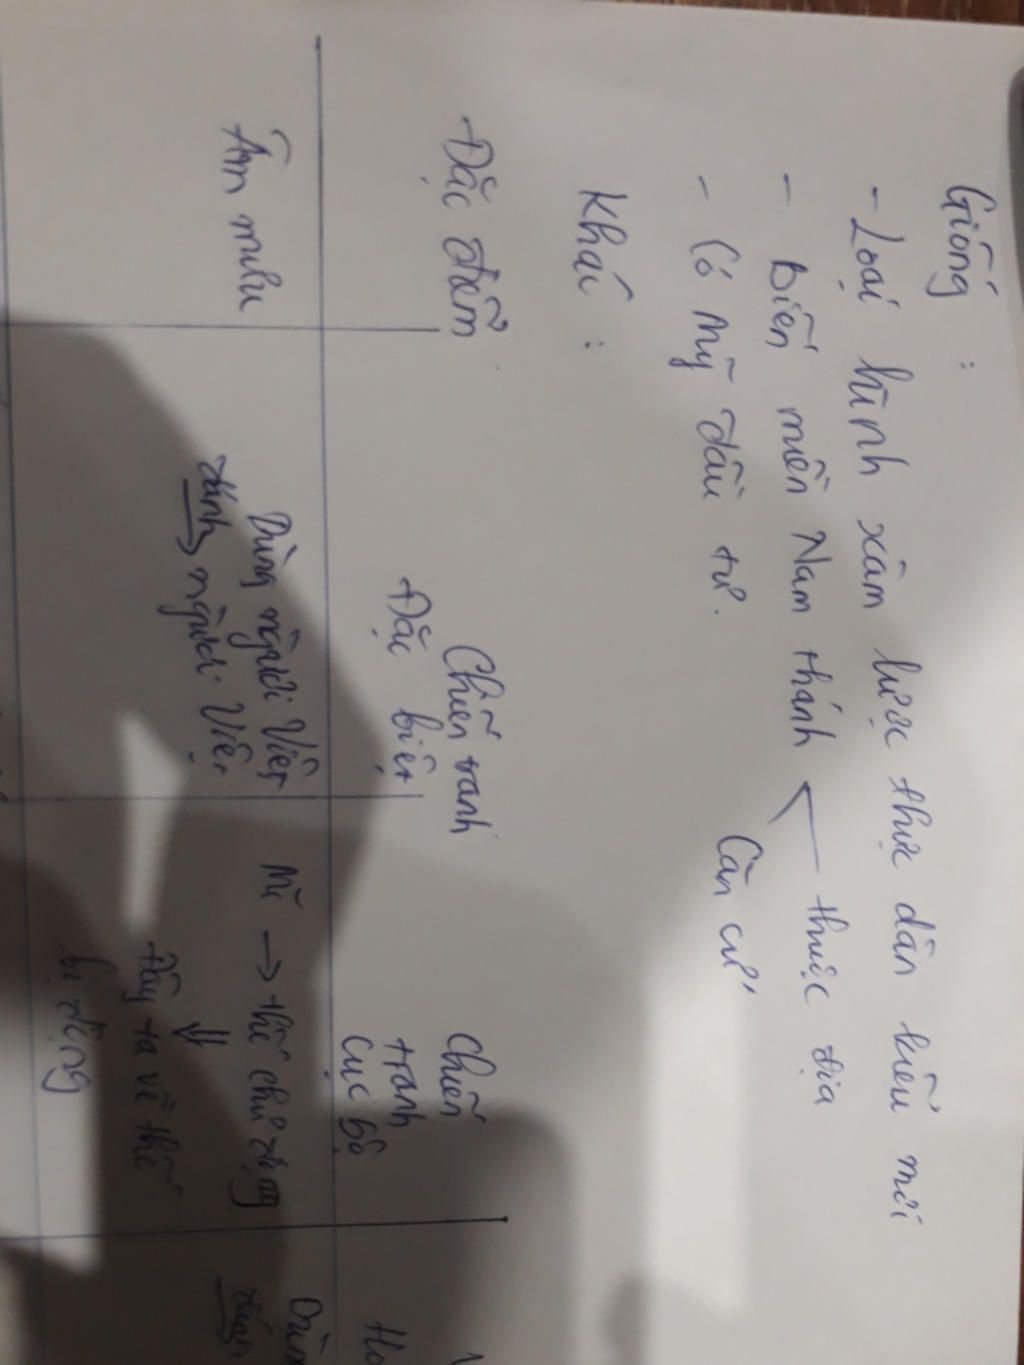 Giống :
- Loại hình xâm lược thực dân kiểu mới
- Biến miền Nam thành thuộc địa
Căn cứ
- Có Mỹ đầu tư.
Khác :
Đặc điểm
Chiến tranh
Đặc biệt
Chiến
tranh
cục bộ
Âm mưu
Dùng người Việt
đánh người Việt
Mĩ → thế chủ động
⇓
Đẩy ta về thế
bị động